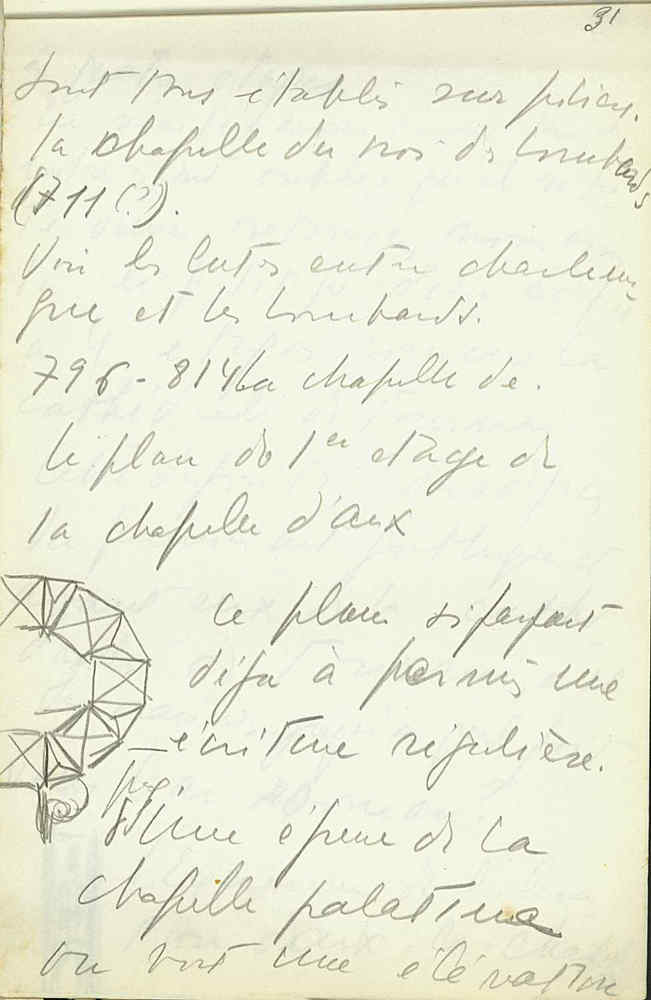 31
sont tous établis sur piliers.
la chapelle du roi des Lombards
(711(?).
Voir les luttes entre Charlema
gne et les Lombards.
796-814 La chapelle de.
le plan du 1er etage de
la chapelle d'aix
Ce plan si parfait
déja à permis une
écriture régulière.
une de la
chapelle palatine
on voit une élévation